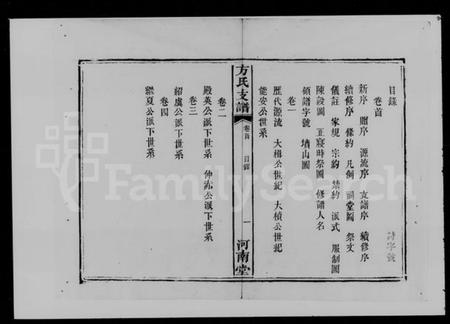 目錄
卷首
新序 贈序 源流序 支譜序 續修序
續修序 條約 凡例 祠堂圖 祭文
儀註 家規 宗約 禁約 派式 服制圖
陳設圖 正寢時祭圖 修譜人名
領譜字號 墳山圖
卷一
歷代源流 大相公世紀 大楨公世紀
能安公世系
方氏支譜 卷首 目錄 一 河南堂
卷二
殿英公派下世系 仲 公派下世系
卷三
紹虞公派下世系
卷四
繼夏公派下世系
字號
FamilySearch